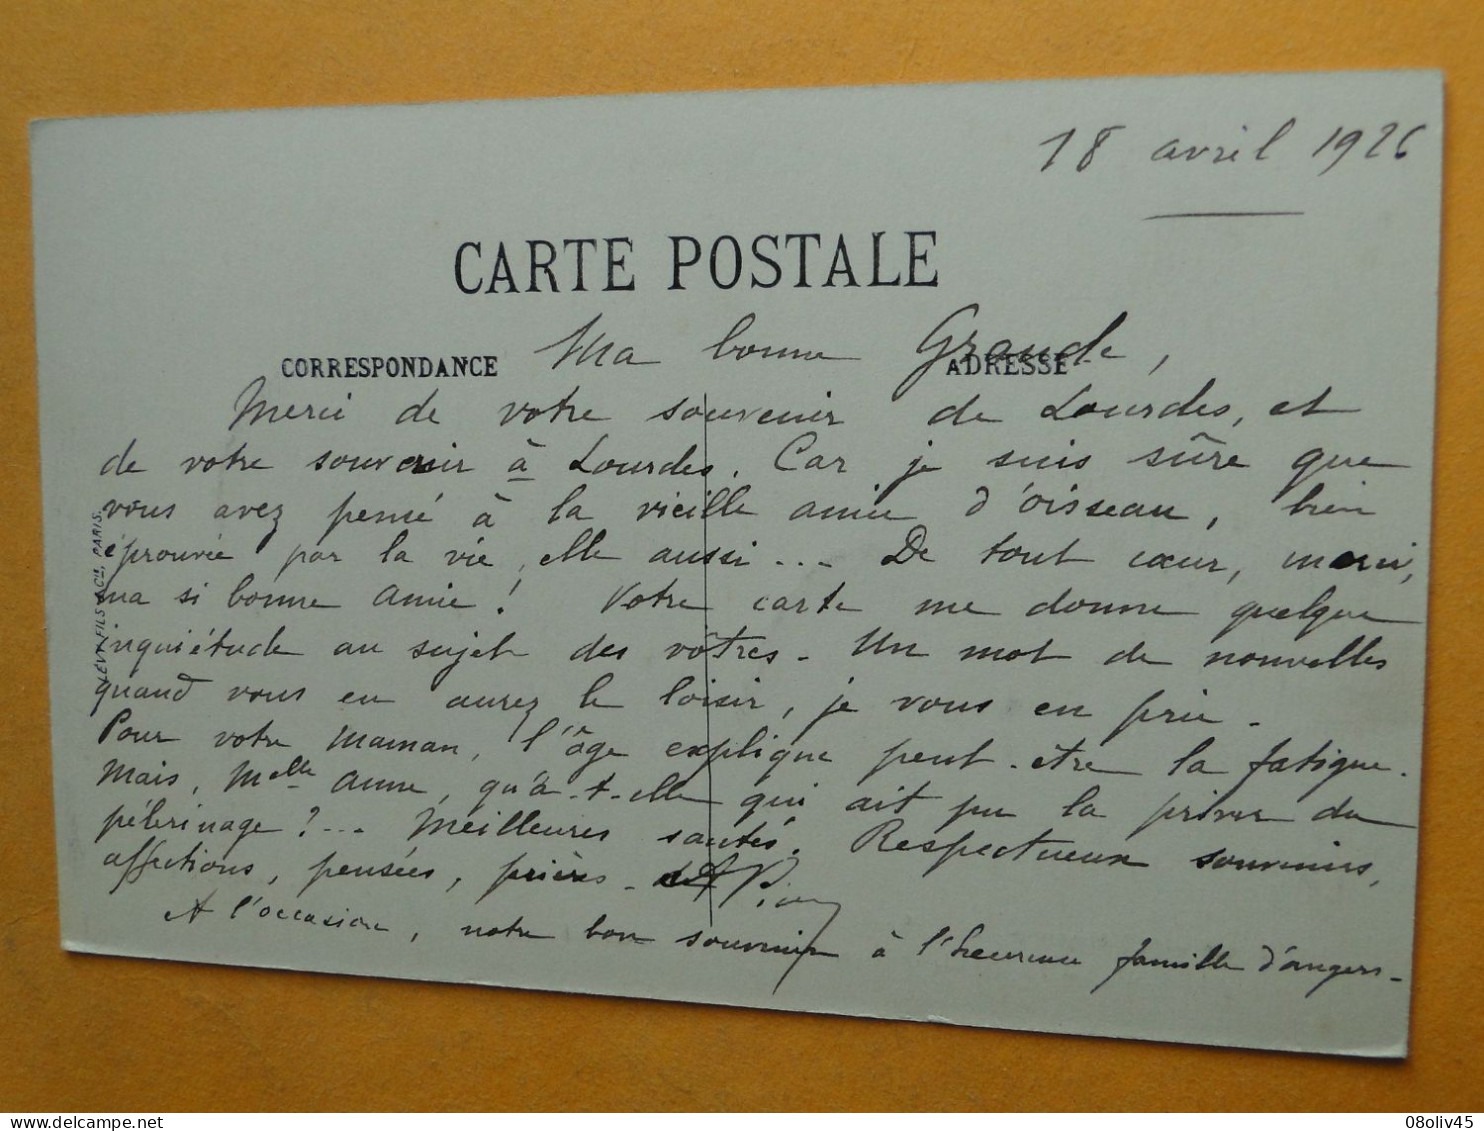 18 avril 1926
CARTE POSTALE
CORRESPONDANCE
ADRESSE
Ma bonne Grande,
Merci de votre souvenir de Lourdes, et
de votre souvenir à Lourdes. Car je suis sûre que
vous avez pensé à la vieille amie d'oisseau, bien
éprouvée par la vie, elle aussi... De tout cœur, merci,
ma si bonne Amie! Votre carte me donne quelque
inquiétude au sujet des vôtres. Un mot de nouvelles
quand vous en aurez le loisir, je vous en prie.
Pour votre Maman, l'âge explique peut-être la fatigue.
Mais, Melle Anne, qu'a-t-elle qui ait pu la priver du
pélerinage?... Meilleures santés. Respectueux souvenirs,
affections, pensées, prières.
A l'occasion, notre bon souvenir à l'heureuse famille d'angers.
LÉVY FILS & Cie, PARIS.
delcampe.net
08oliv45